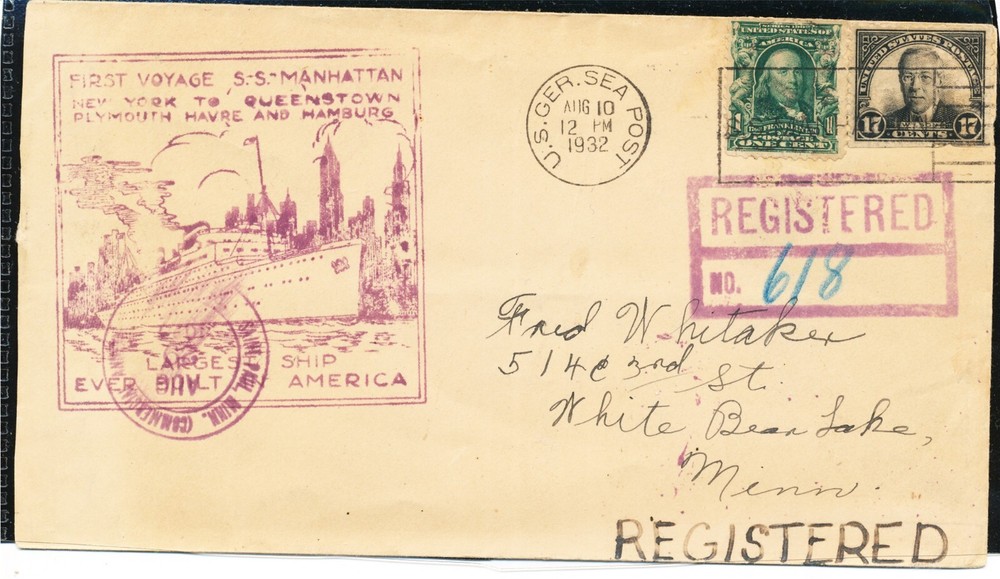 FIRST VOYAGE S.S. MANHATTAN
NEW YORK TO QUEENSTOWN
PLYMOUTH HAVRE AND HAMBURG
LARGEST SHIP
EVER BUILT IN AMERICA
SAINT PAUL, MINN. (COMMERCIAL
AUG
U.S. GER. SEA POST
AUG 10
12 PM
1932
SERIES 1902
UNITED STATES OF
AMERICA
1 FRANKLIN 1
POSTAGE
ONE CENT
UNITED STATES POSTAGE
17 CENTS 17
REGISTERED
NO. 618
Fred Whitaker
514 3rd St.
White Bear Lake,
Minn.
REGISTERED